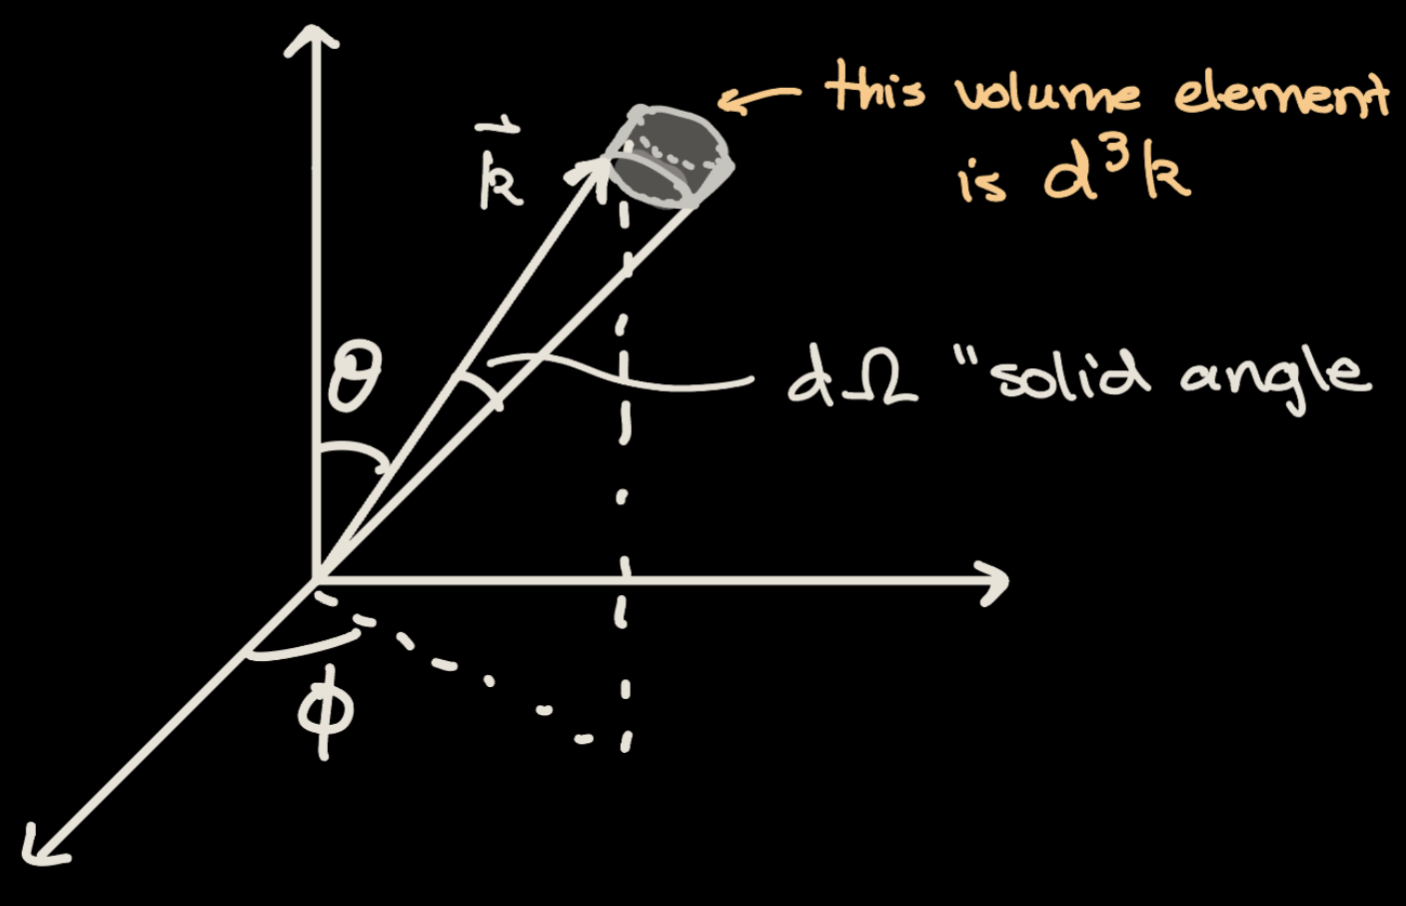 this volume element
is d³k
k⃗
θ
dΩ "solid angle
ϕ